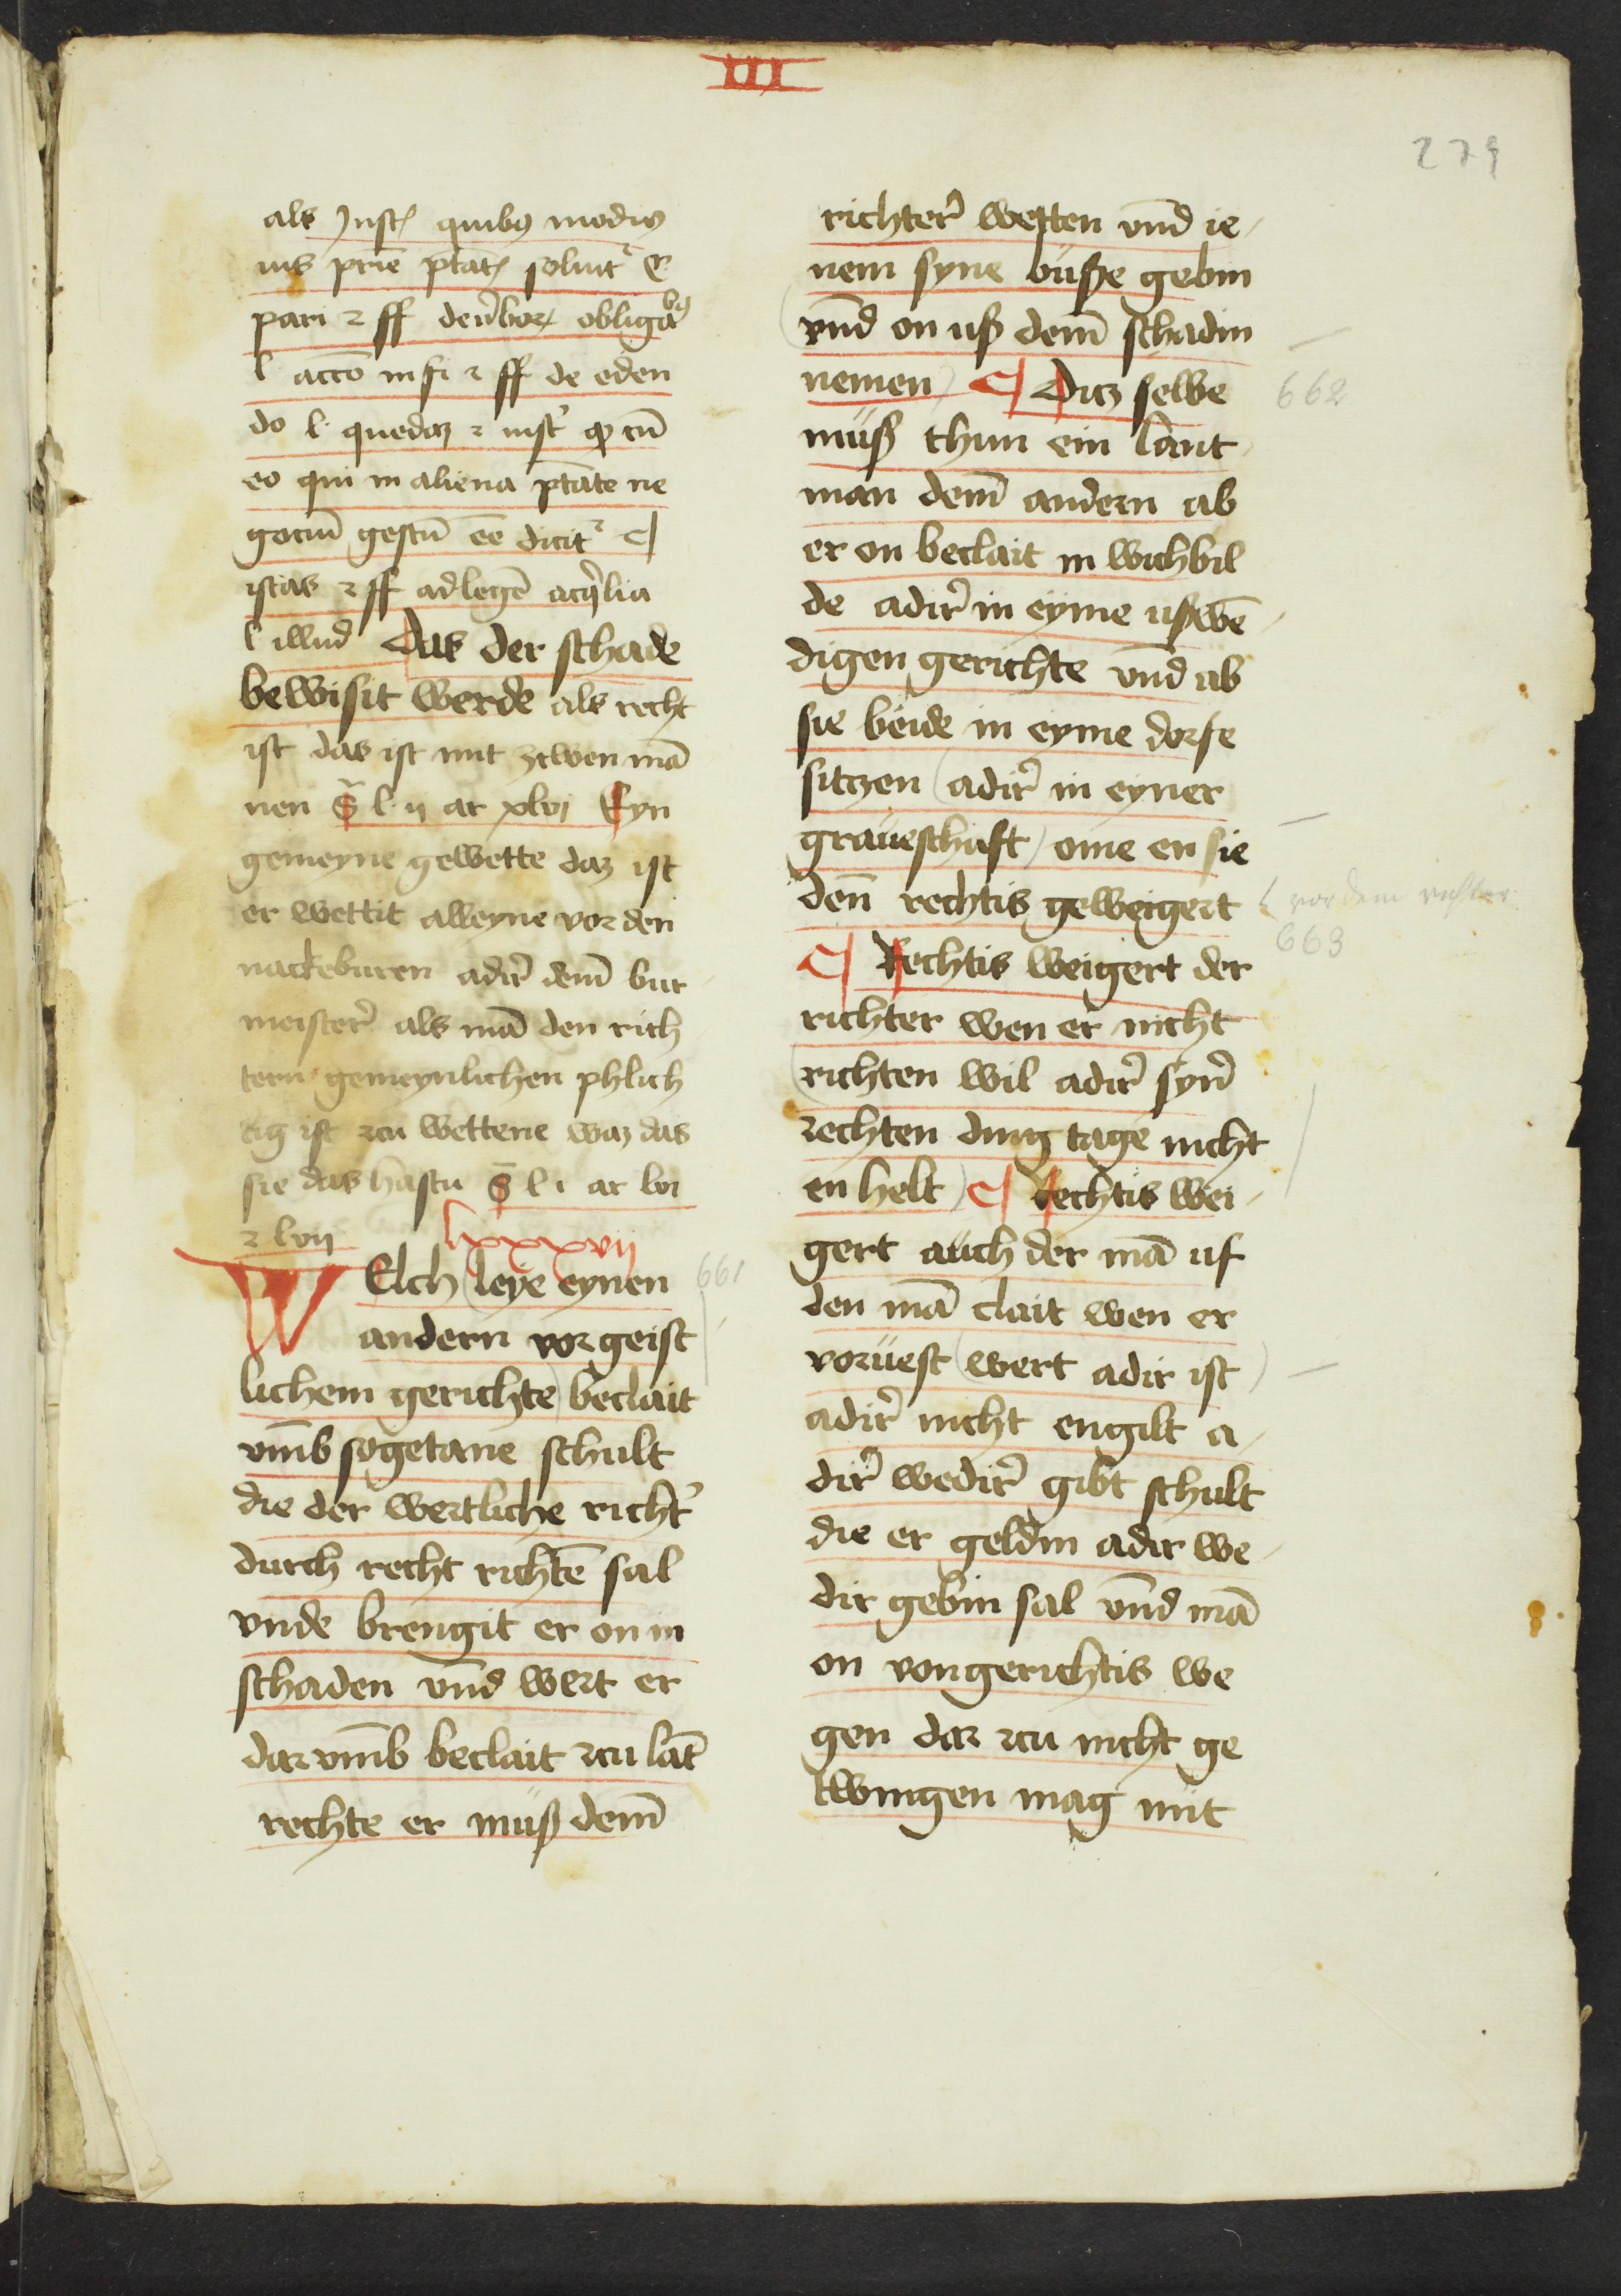 III
279
als Jnst quibꝯ modis
ius p̄rie ptāt soluit᷑
pari ⁊ ff de v̓boꝝ obligabꝯ
l accō in fi ⁊ ff de eden
do l. quedaz ⁊ inst̓ ꝙ cū
eo qui in aliena ptāte ne
gociū gestū eē dicit᷑ ¶
istas ⁊ ff ad legē aq̓lia
l illud Das der schade
bewisit werde als recht
ist das ist mit zcwen mā
nen s̄ l. ij ar xlvj Eyn
gemeyne gewette daz ist
er wettit alleyne vor den
nackeburen adir̓ dem̄ bur
meister̓ als mā den rich
tern gemeynlichen phlich
tig ist zcu wettene waz das
sie das hastu s̄ l i ar lvi
⁊ lvij
lxxxvij
WElch leye eynen
661
andern vor geist
lichem gerichte) beclait
vm̄b sogetane schult
die der wertliche richt̓
durch recht richtē sal
vnde brengit er on in
schaden vn̄d wert er
dar vm̄b beclait zcu lāt
rechte er müß dem̄
richter̓ wetten vn̄d ie
nem syne büße gebin
(vn̄d on uß dem̄ schadin
nemen) ¶ Ditz selbe
662
müß thun ein lant
man dem̄ andern ab
er on beclait in wichbil
de adir̓ in eyme ußwē
digen gerichte vn̄d ab
sie beide in eyme dorfe
sitzen (adir̓ in eyner
graueschaft) ome en sie
den̄ rechtis geweigert
vor dem richter
663
¶ Rechtis weigert der
richter wen er nicht
(richten wil adir̓ syn̓
rechten ding tage nicht
en helt) ¶ Rechtis wei
gert auch der mā uf
den mā clait wen er
voruest (wert adir ist)
adir̓ nicht engilt a
dir̓ wedir̓ gibt schult
die er geldin adir we
dir gebin sal vn̄d mā
on von gerichtis we
gen dar zcu nicht ge
twingen mag mit